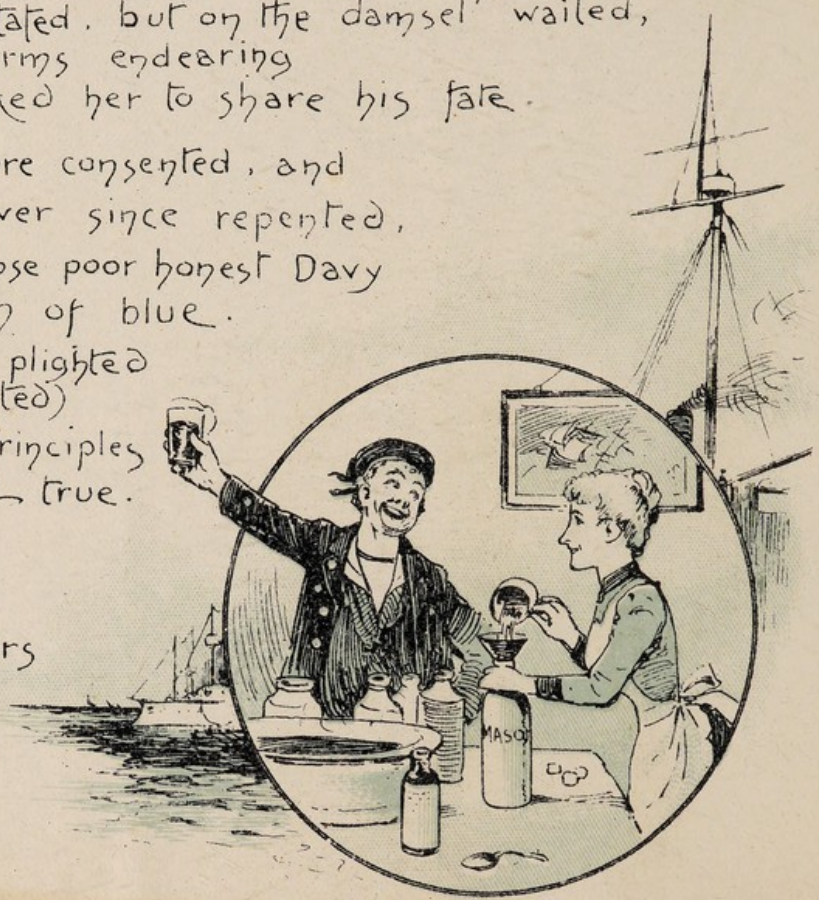 tated, but on the damsel waited,
rms endearing
ked her to share his fate.
re consented, and
ver since repented,
ose poor honest Davy
of blue.
plighted
ted)
rinciples
true.
rs
MASO